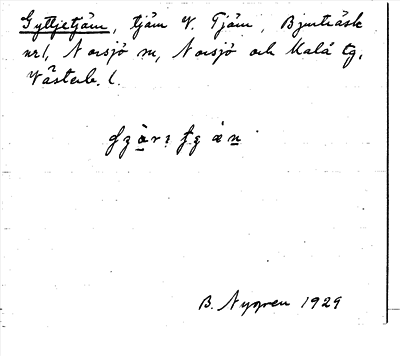 Gyttjetjärn, tjärn V. Tjärn, Bjurträsk
nr1, Norsjö sn, Norsjö och Malå tg,
Västerb. l.
B. Nygren 1929